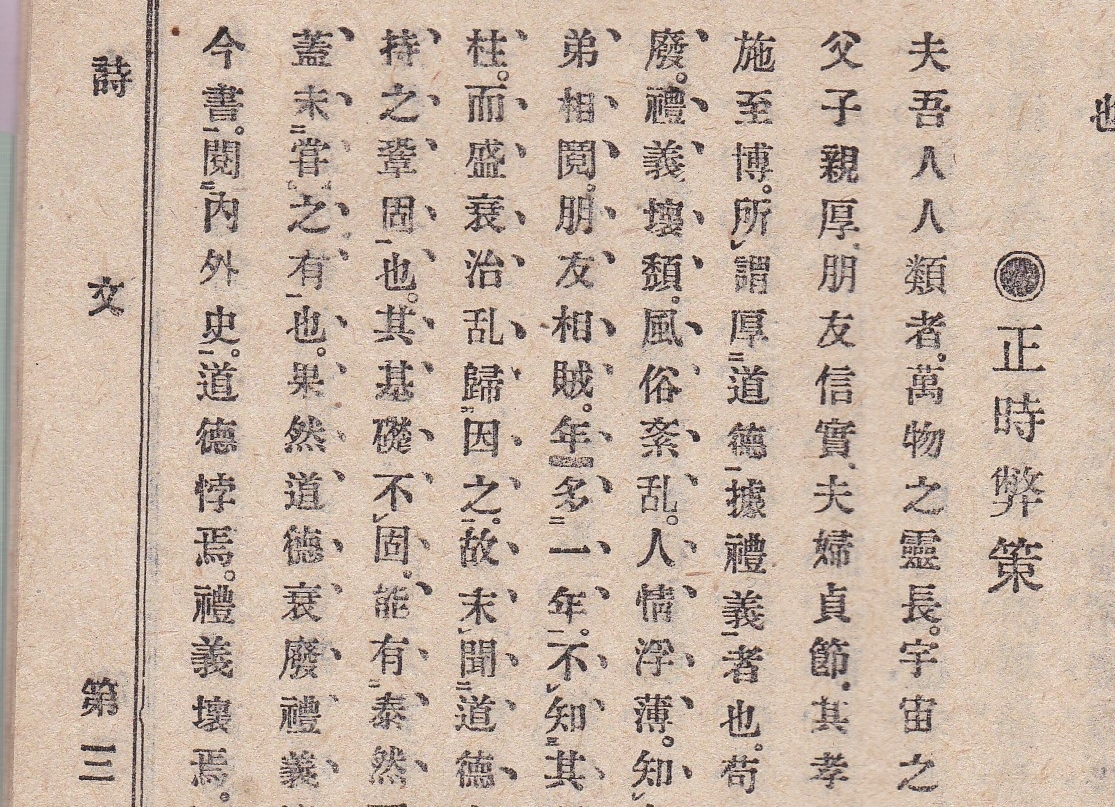 也
◉正時弊策
夫吾人人類者。萬物之靈長。宇宙之
父子親厚。朋友信實。夫婦貞節。其孝
施至博。所謂厚道德據禮義者也。苟
廢。禮義壞頽。風俗紊乱。人情浮薄。知
弟相鬩。朋友相賊。年多一年。不知其
柱。而盛衰治乱歸因之。故未聞道德
持之鞏固也。其基礎不固。能有泰然
蓋未甞之有也。果然道德衰廢禮義
今書。閱内外史。道德悖焉。禮義壞焉。
詩文 第三